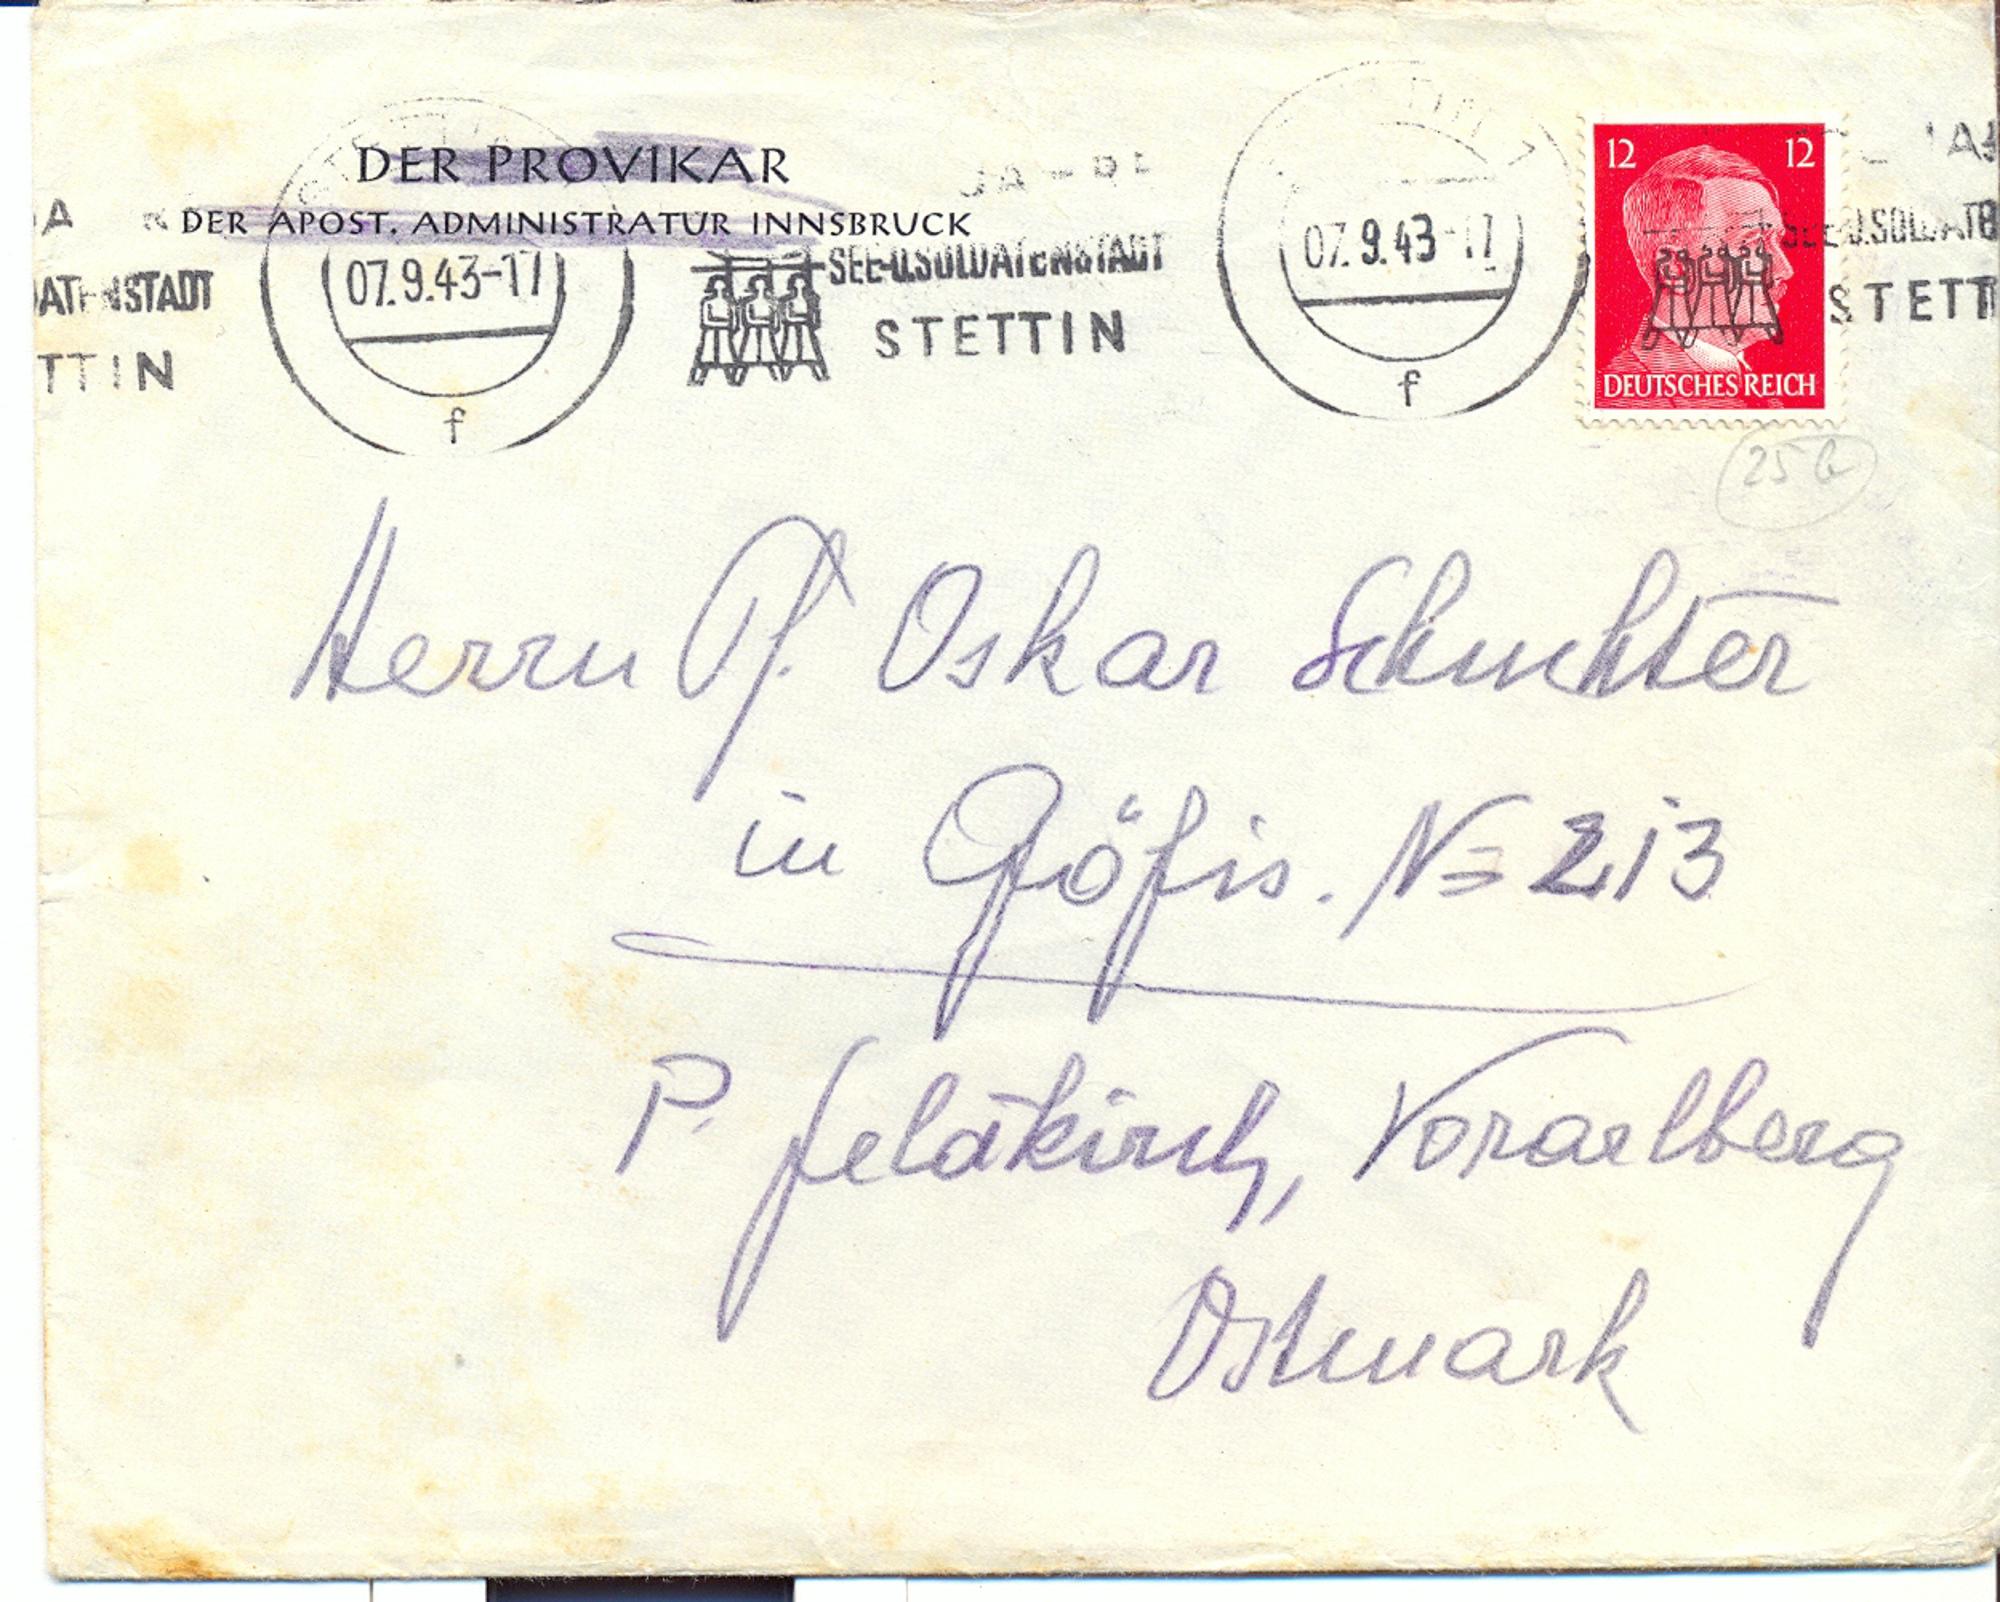 DER PROVIKAR
DER APOST. ADMINISTRATUR INNSBRUCK
DATENSTADT
TTIN
07.9.43-17
f
SEE-U.SOLDATENSTADT
STETTIN
07.9.43-17
f
12 12
DEUTSCHES REICH
SEE-U.SOLDATE
STETT
25b
Herrn Pf. Oskar Schuchter
in Göfis. No 213
P. Feldkirch, Vorarlberg
Ostmark